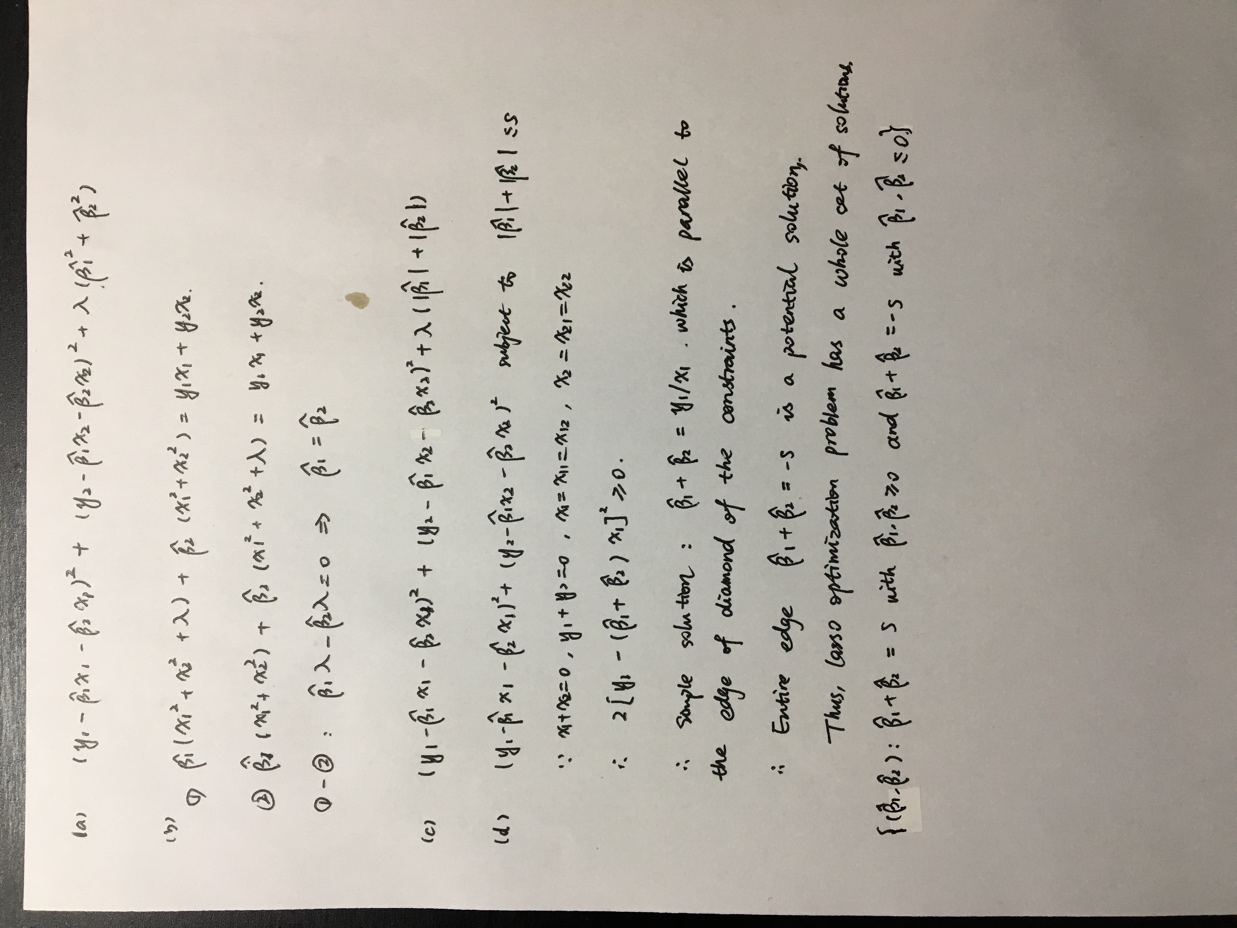 (a) (y₁ - β̂₁x₁ - β̂₂x₁)² + (y₂ - β̂₁x₂ - β̂₂x₂)² + λ(β̂₁² + β̂₂²)
(b)
① β̂₁(x₁² + x₂² + λ) + β̂₂(x₁² + x₂²) = y₁x₁ + y₂x₂.
② β̂₁(x₁² + x₂²) + β̂₂(x₁² + x₂² + λ) = y₁x₁ + y₂x₂.
① - ② : β̂₁λ - β̂₂λ = 0 ⇒ β̂₁ = β̂₂
(c) (y₁ - β̂₁x₁ - β̂₂x₂)² + (y₂ - β̂₁x₂ - β̂₂x₂)² + λ(|β̂₁| + |β̂₂|)
(d) (y₁ - β̂₁x₁ - β̂₂x₁)² + (y₂ - β̂₁x₂ - β̂₂x₂)² subject to |β̂₁| + |β̂₂| ≤ s
∵ x₁ + x₂ = 0, y₁ + y₂ = 0, x₁ = x₁₁ = x₁₂, x₂ = x₂₁ = x₂₂
∴ 2[y₁ - (β̂₁ + β̂₂)x₁]² ≥ 0.
∴ Simple solution : β̂₁ + β̂₂ = y₁/x₁. which is parallel to
the edge of diamond of the constraints.
∴ Entire edge β̂₁ + β̂₂ = -s is a potential solution.
Thus, lasso optimization problem has a whole set of solutions,
{(β̂₁, β̂₂): β̂₁ + β̂₂ = s with β̂₁, β̂₂ ≥ 0 and β̂₁ + β̂₂ = -s with β̂₁, β̂₂ ≤ 0}